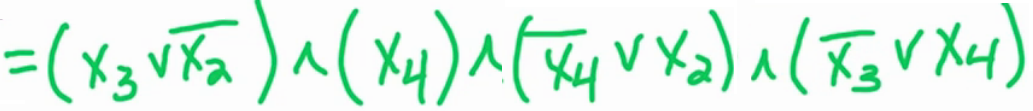 =(x₃ ∨ x̅₂) ∧ (x₄) ∧ (x̅₄ ∨ x₂) ∧ (x̅₃ ∨ x₄)